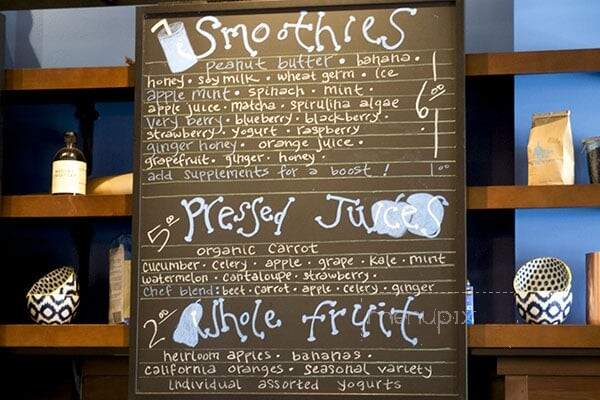 Smoothies
peanut butter • banana •
honey • soy milk • wheat germ • ice
apple mint • spinach • mint •
apple juice • matcha • spirulina algae
6.00
very berry • blueberry • blackberry •
strawberry • yogurt • raspberry
ginger honey • orange juice •
grapefruit • ginger • honey •
add supplements for a boost ! 1.00
5.00 Pressed Juices
organic carrot
cucumber • celery • apple • grape • kale • mint
watermelon • contaloupe • strawberry •
chef blend: beet • carrot • apple • celery • ginger
2.00 Whole fruit
heirloom apples • bananas •
california oranges • seasonal variety
individual assorted yogurts
menupix